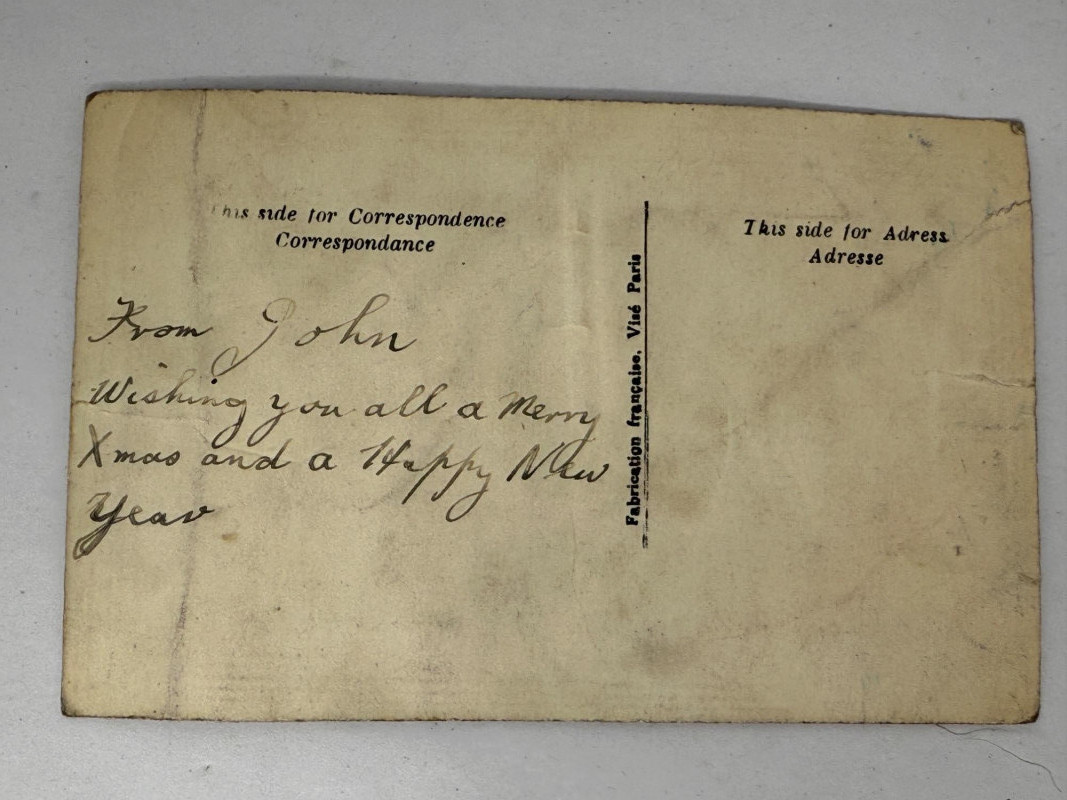 This side for Correspondence
Correspondance
From John
Wishing you all a Merry
Xmas and a Happy New
Year
Fabrication française, Visé Paris
This side for Adress
Adresse